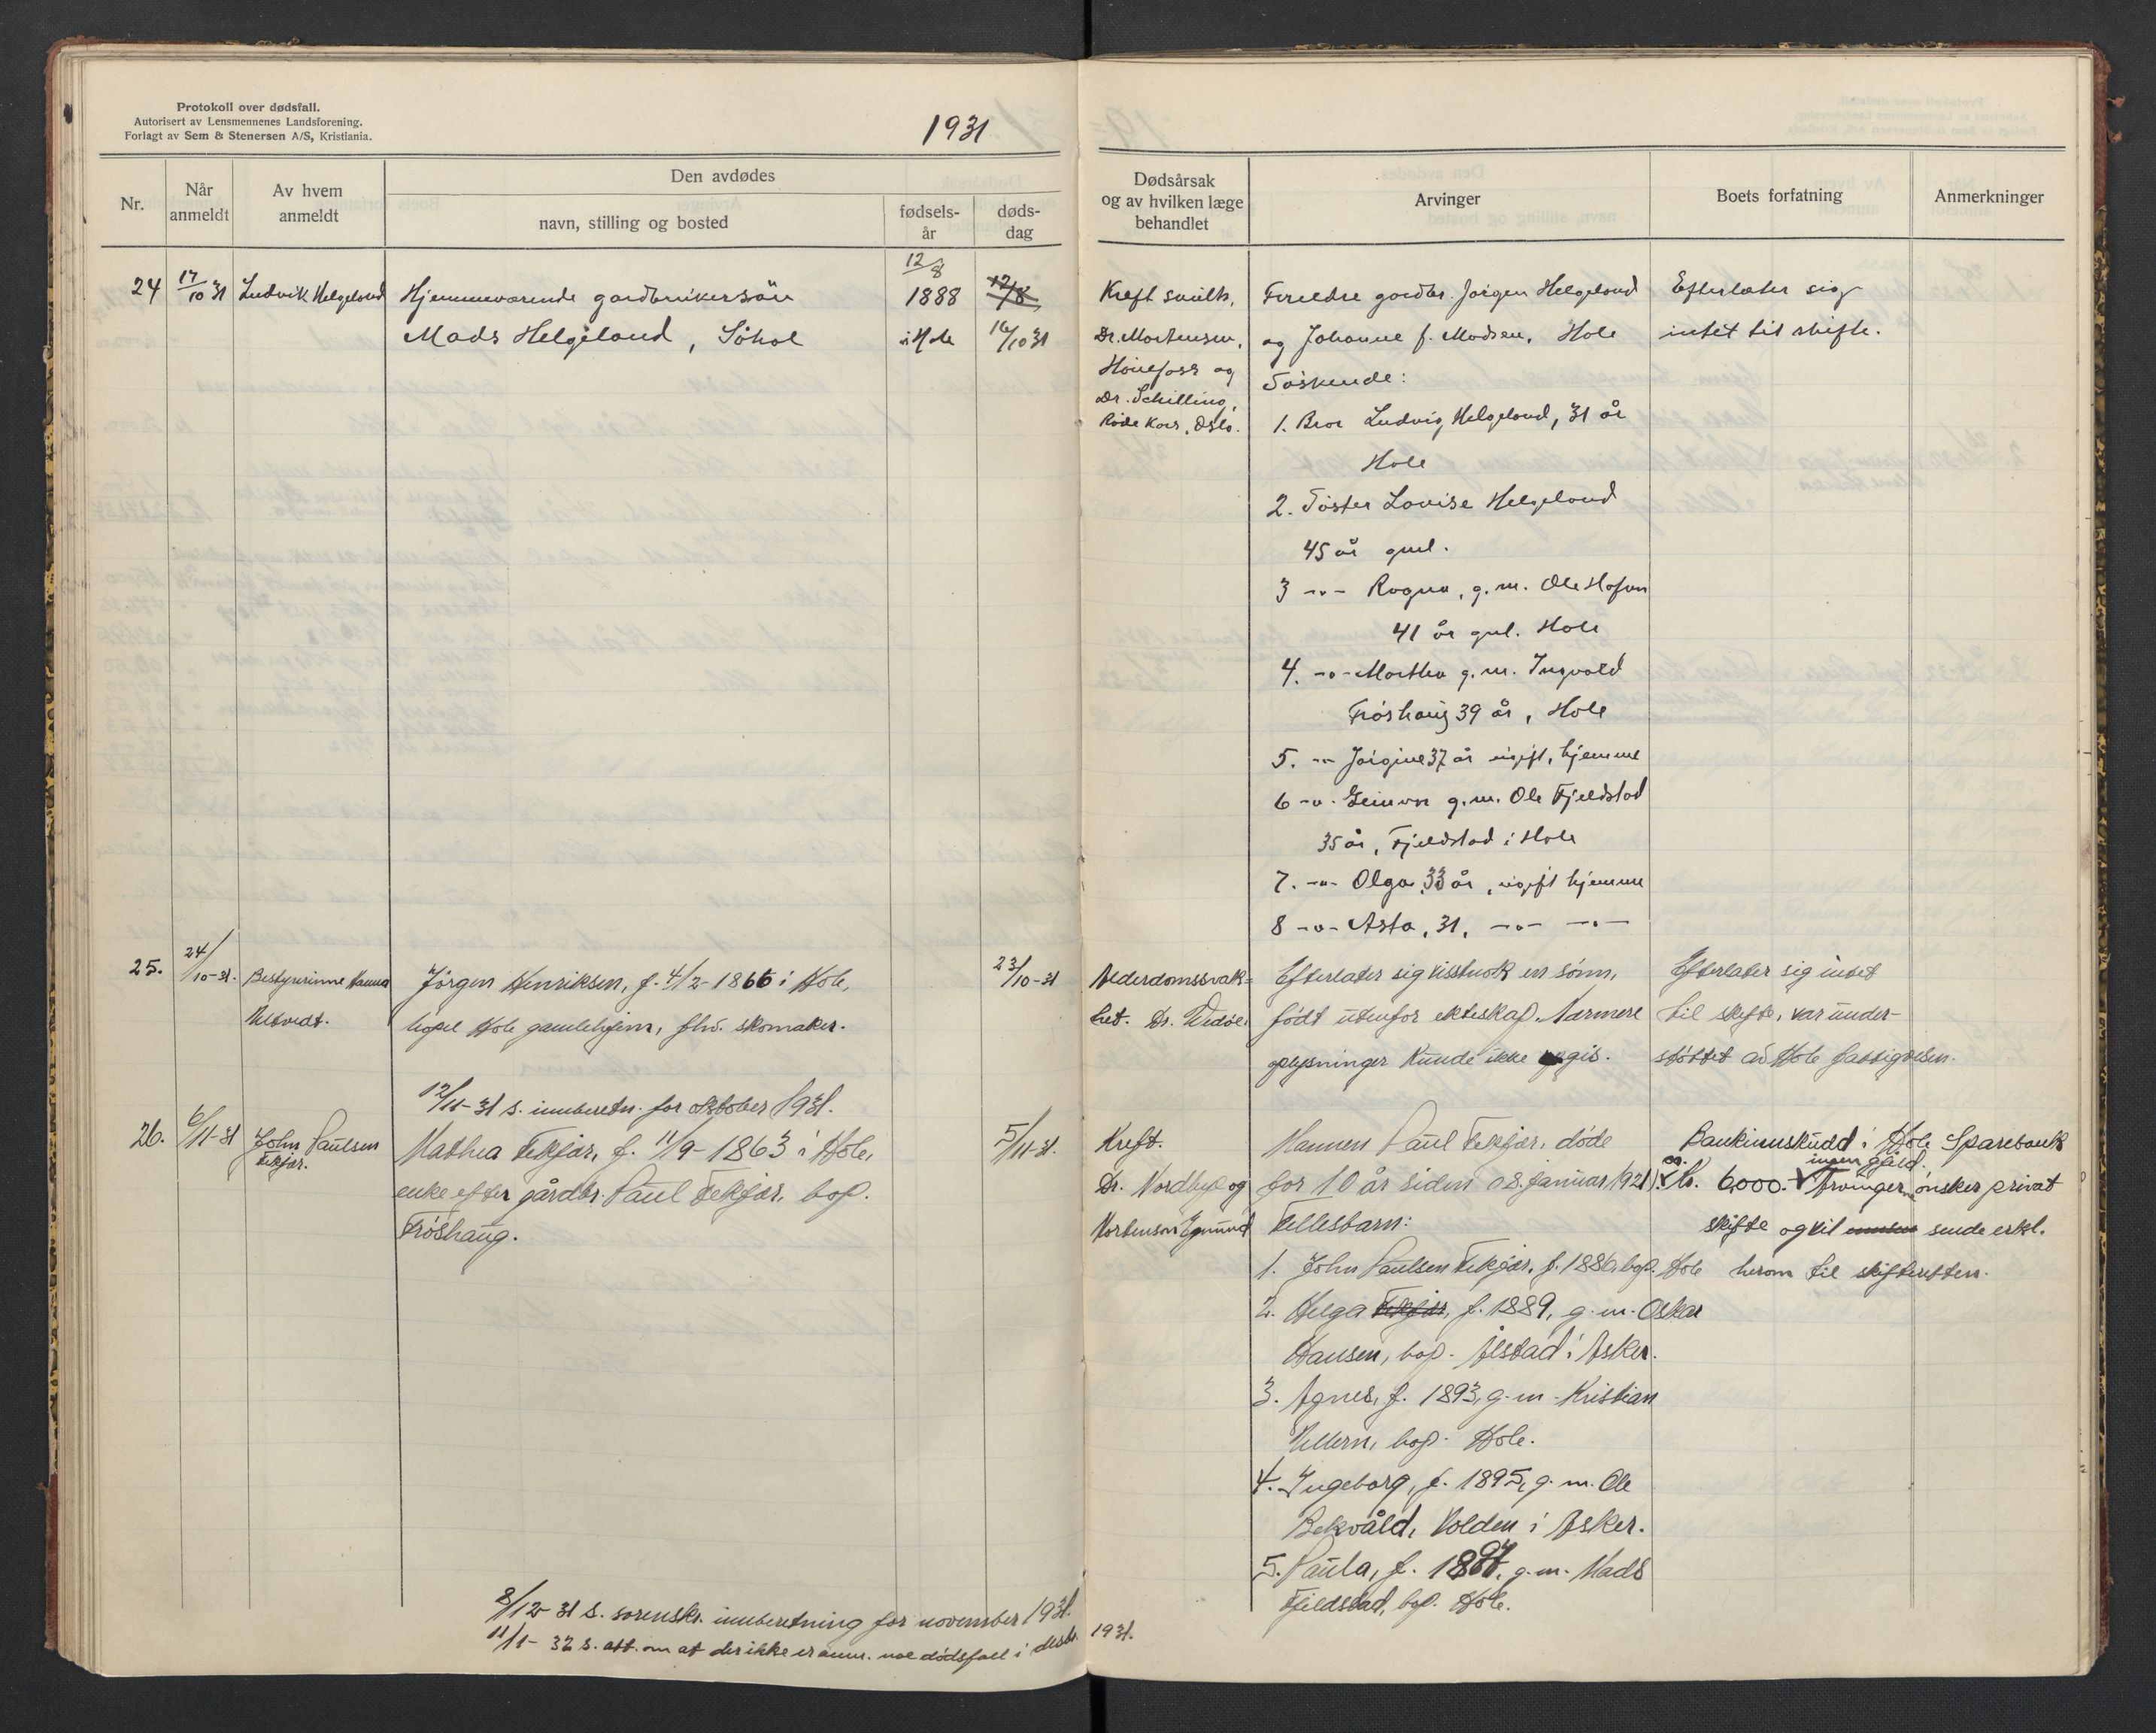 Protokoll over dødsfall.
Autorisert av Lensmennenes Landsforening.
Forlagt av Sem & Stenersen A/S, Kristiania.
1931
Nr.
Når
anmeldt
Av hvem
anmeldt
Den avdødes
navn, stilling og bosted
fødsels-
år
døds-
dag
Dødsårsak
og av hvilken læge
behandlet
Arvinger
Boets forfatning
Anmerkninger
24
17/10 31
Ludvik Helgeland
Hjemmeværende gardbrukersön
Mads Helgeland, Söhol
12/8
1888
i Hole
12/8
16/10 31
Kreft
Dr. Mortensen,
Hönefoss og
Dr. Schilling,
Röde Kors, Oslo.
Foreldre gardbr. Jörgen Helgeland
og Johanne f. Madsen, Hole
Söskende:
1. Bror Ludvig Helgeland, 31 år
Hole
2. Söster Lovise Helgeland
45 år gml.
3 -"- Ragna, g.m. Ole Hafnor
41 år gml. Hole
4. -"- Martha g.m. Ingvald
Fröshaug 39 år, Hole
5. -"- Jörgine 37 år ugift, hjemme
6 -"- Gunvor g.m. Ole Fjeldstad
35 år, Fjeldstad i Hole
7. -"- Olga, 33 år, ugift hjemme
8 -"- Asta, 31, -"- -"-
Efterlater sig
intet til skifte.
25.
24/10-31.
Bestyrerinne Hanna
Jörgen Henriksen, f. 4/2-1866 i Hole,
bopel Hole gamlehjem, fhv. skomaker.
23/10-31
Alderdomssvak-
het. Dr. Widöe.
Efterlater sig visstnok en sönn,
födt utenfor ekteskap. Nærmere
oplysninger kunde ikke gis.
Efterlater sig intet
til skifte, var under-
stöttet av Hole fattigvesen.
12/11-31 s. innberetn. for oktober 1931.
26.
6/11-31
John Paulsen
Fekjær.
Mathea Fekjær, f. 11/9-1863 i Hole,
enke efter gårdbr. Paul Fekjær, bop.
Fröshaug.
5/11-31.
Kreft.
Dr. Nordbye og
Mortenson Egnund
Mannen Paul Fekjær, döde
for 10 år siden (18. januar 1921).
Fellesbarn:
1. John Paulsen Fekjær, f. 1886, bop. Hole
2. Helga Fekjær, f. 1889, g.m. Oskar
Hansen, bop. Ålstad i Asker.
3. Agnes, f. 1893, g.m. Kristian
Vellern, bop. Hole.
4. Ingeborg, f. 1895, g.m. Ole
Bekvåld, Volden i Asker.
5. Paula, f. 1897, g.m. Mads
Fjeldstad, bop. Hole.
Bankinnskudd i Hole Sparebank
ca. kr. 6000. ingen gjeld. Arvinger önsker privat
skifte og vil sende erkl.
herom til skifteretten.
8/12-31 s. sorenskr. innberetning for november 1931.
11/1-32 s. att. om at der ikke er anm. noe dödsfall i desbr. 1931.